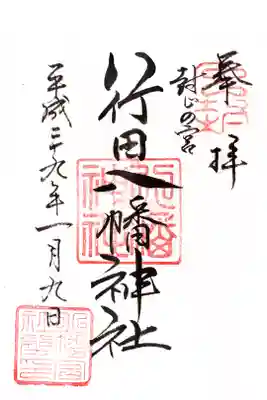 奉拝
封じの宮
行田八幡神社
平成二十九年一月九日